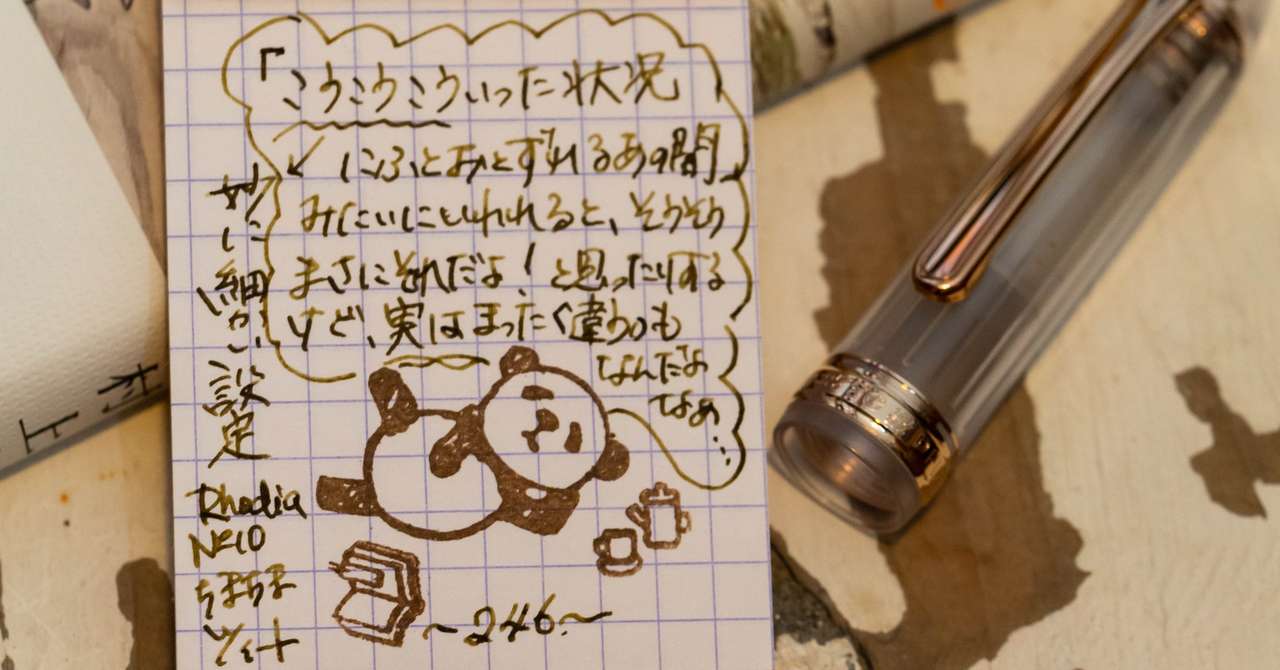 「こうこうこういった状況
にふとおとずれるあの間」
みたいにいわれると、そうそう
まさにそれだよ！と思ったりする
けど、実はまったく違うのも
なんだよ
なぁ…
妙に細かい設定
Rhodia
No10
ちまちま
ツイート
～246.～